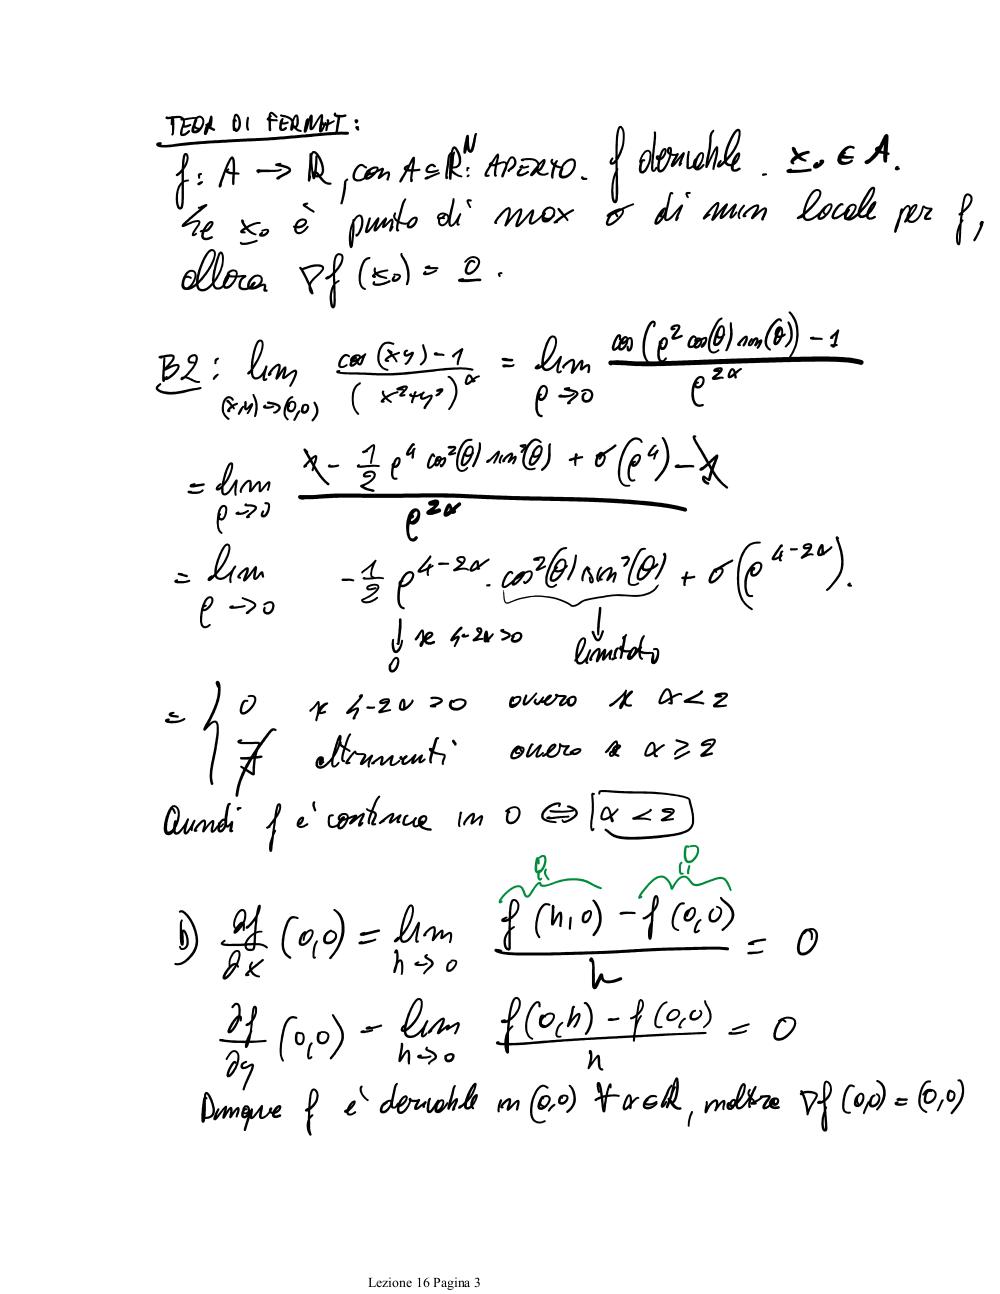 TEOR DI FERMAT:
f: A → ℝ, con A ⊆ ℝ^N: APERTO. f derivabile. x₀ ∈ A.
Se x₀ è punto di max o di min locale per f,
allora ∇f (x₀) = 0.
B2: lim_{(x,y)→(0,0)} (cos(xy) - 1)/(x²+y²)^α = lim_{ρ→0} (cos(ρ² cos(θ) sin(θ)) - 1)/ρ^{2α}
= lim_{ρ→0} (1 - 1/2 ρ⁴ cos²(θ) sin²(θ) + o(ρ⁴) - 1)/ρ^{2α}
= lim_{ρ→0} -1/2 ρ^{4-2α} · cos²(θ) sin²(θ) + o(ρ^{4-2α}).
↓ 0 se 4-2α>0 ↓ limitato
= { 0 se 4-2α>0 ovvero se α<2
∄ altrimenti ovvero se α ≥ 2
Quindi f è continua in 0 ⇔ α < 2
0 0
b) ∂f/∂x (0,0) = lim_{h→0} (f(h,0) - f(0,0))/h = 0
∂f/∂y (0,0) = lim_{h→0} (f(0,h) - f(0,0))/h = 0
Dunque f è derivabile in (0,0) ∀α∈ℝ, inoltre ∇f(0,0) = (0,0)
Lezione 16 Pagina 3